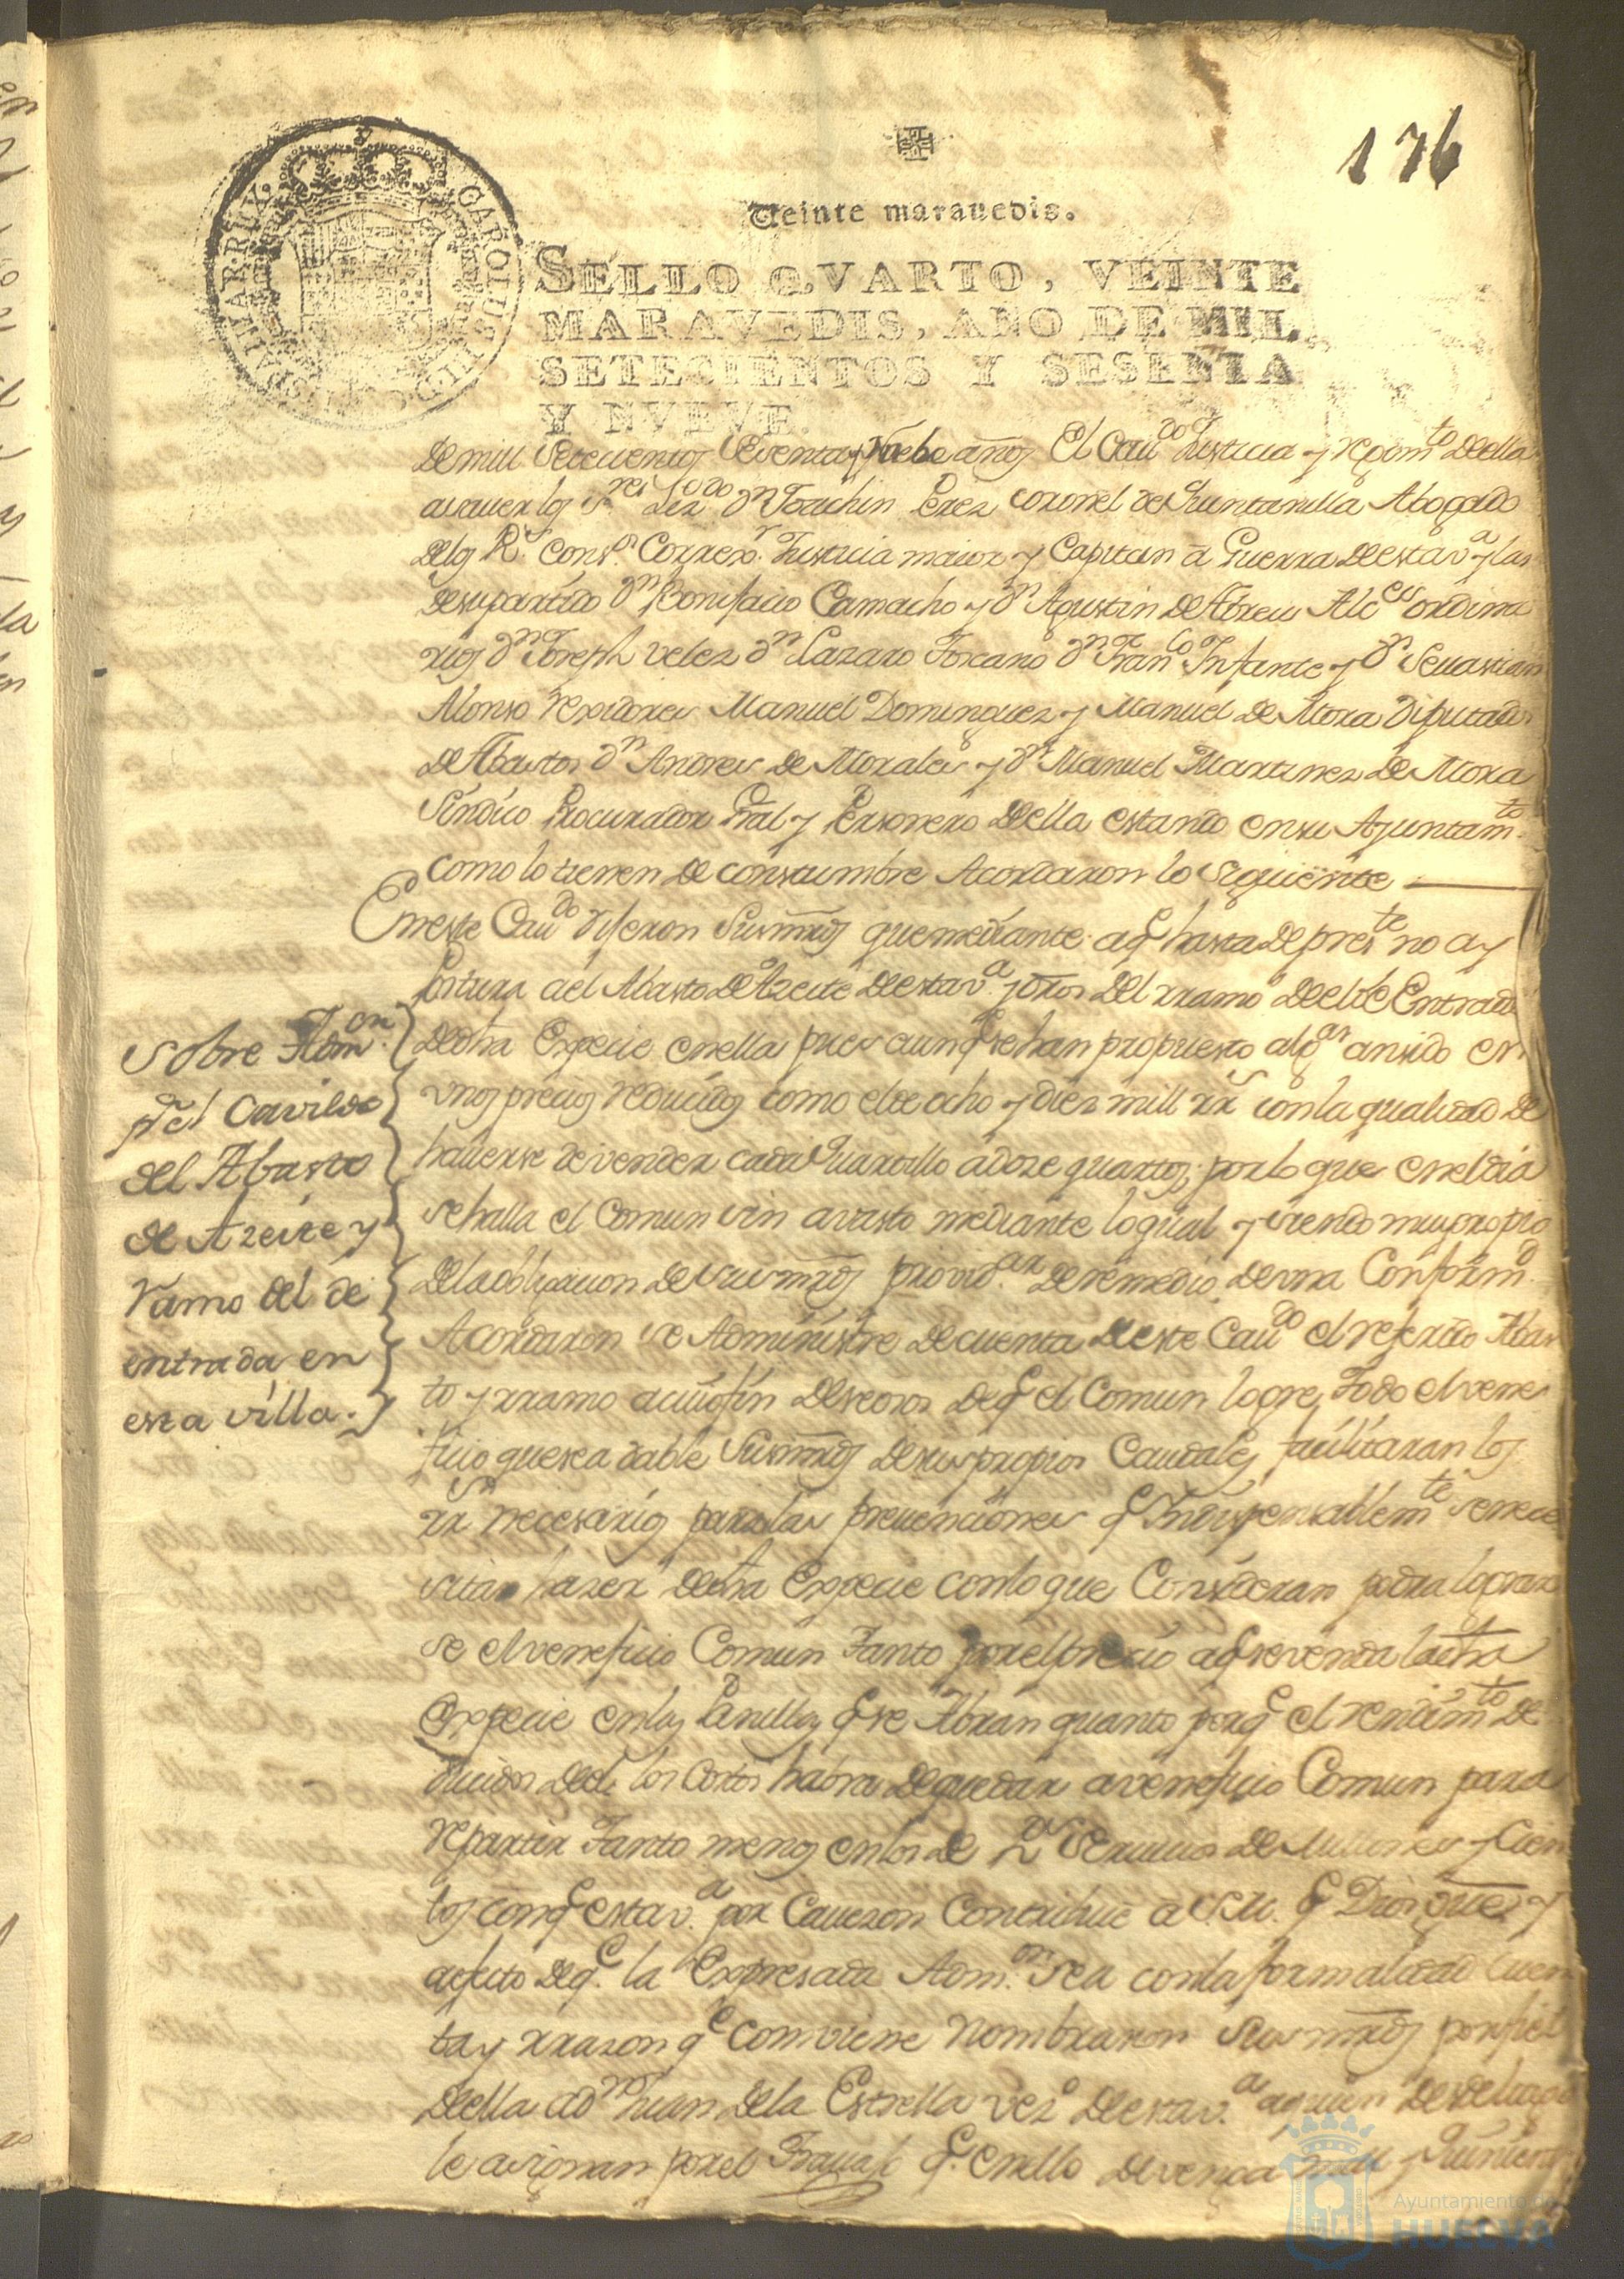 176
Veinte marauedis.
SELLO QVARTO, VEINTE
MARAVEDIS, AÑO DE MIL
SETECIENTOS Y SESENTA
Y NVEVE.
CAROLUS III D. G. HISPANIAR. REX
de mill setecientos sesenta y Nuebe años El Cauᵈᵒ Justicia y reximᵗᵒ de ella
asauer los Sʳᵉˢ Lizᵈᵒ Dⁿ Joachin Perez coronel de Quintanilla Abogado
de los Rˢ Consˢ Correxʳ Justicia maior y Capitan a Guerra de esta vᵃ y las
de su partido Dⁿ Bonifacio Camacho y Dⁿ Agustin de Abreu Alcᵉˢ ordina
rios Dⁿ Joseph velez Dⁿ Lazaro Toscano Dⁿ Franᶜᵒ Infante y Dⁿ Seuastian
Alonso rexidores Manuel Dominguez y Manuel de Mora Diputados
de Abastos Dⁿ Andres de Morales y Dⁿ Manuel Martinez de Mora
Sindico Procurador Gral y Personero de ella estando en su Ayuntamᵗᵒ
como lo tienen de constumbre Acordaron lo siguiente
En este Cauᵈᵒ dijeron Susmrds que mediante a q hasta de presᵗᵉ no ay
Postura a el Abasto de Azeite de esta vᵃ del rramo de el de Entrada
de dha Especie en ella pues aunq se han propuesto algᵃˢ an sido en
unos precios reducidos como el de ocho y diez mill rrˢ con la qualidad de
hauerse de vender cada Quartillo a doze quartos, por lo que en el dia
se halla el Comun sin avasto mediante lo qual y siendo muy propio
de la obligacion de susmrds de remedio de una Conformᵈ
Acordaron se Administre de cuenta de este Cauᵈᵒ el referido Abas
to y rramo a cuio fin deseosos de q el Comun logre todo el vene
ficio que sea dable Susmrds de sus propios Caudales facilitaran los
rrˢ necesarios para las preuenciones q Indispensablemᵗᵉ se nece
sitan hazer de dha Especie con lo que Consideran podra lograr
se el veneficio Comun tanto por el precio a q se venda la dha
Especie en los q se Abran quanto porq el rendimᵗᵒ de
ducidos de el los costos habra de quedar a veneficio Comun para
repartir tanto menos en los de Servicios de Millones y Cien
tos con q esta vᵃ por Cauezon Contribuie a S.M. q Dios gue y
a efecto de q la Expresada Admᵒⁿ sea con la formalidad cuen
ta y rrazon qᵉ conviene Nombraron Susmrds por fiel
de ella a Dⁿ Juan de la Estrella vezᵒ de esta vᵃ a quien desde luego
le asignan por el Trauaj q en ello devenga mill y Quinientos
Sobre Admᵒⁿ
pʳ el Cavildo
del Abasto
de Azeite y
ramo del de
entrada en
esta villa.
Ayuntamiento de
HUELVA